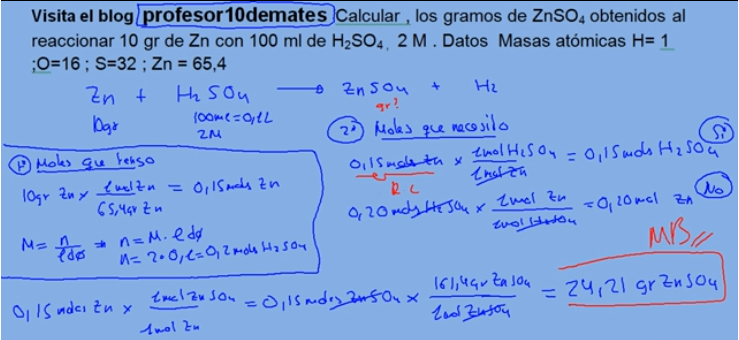 Visita el blog profesor10demates Calcular , los gramos de ZnSO₄ obtenidos al
reaccionar 10 gr de Zn con 100 ml de H₂SO₄ , 2 M . Datos Masas atómicas H= 1
;O=16 ; S=32 ; Zn = 65,4
Zn + H₂SO₄ → ZnSO₄ + H₂
10gr 100ml=0,1L gr?
2M
1º Moles que tengo
10gr Zn × 1mol Zn / 65,4gr Zn = 0,15mols Zn
M= n / l dº ⇒ n=M·l dº
n= 2·0,1=0,2 mols H₂SO₄
2º Moles que necesito
0,15mols Zn × 1mol H₂SO₄ / 1mol Zn = 0,15 mols H₂SO₄ Si
R L
0,20 mols H₂SO₄ × 1mol Zn / 1mol H₂SO₄ = 0,20mol Zn No
MB
0,15 moles Zn × 1mol ZnSO₄ / 1mol Zn = 0,15 moles ZnSO₄ × 161,4gr ZnSO₄ / 1mol ZnSO₄ = 24,21 gr ZnSO₄